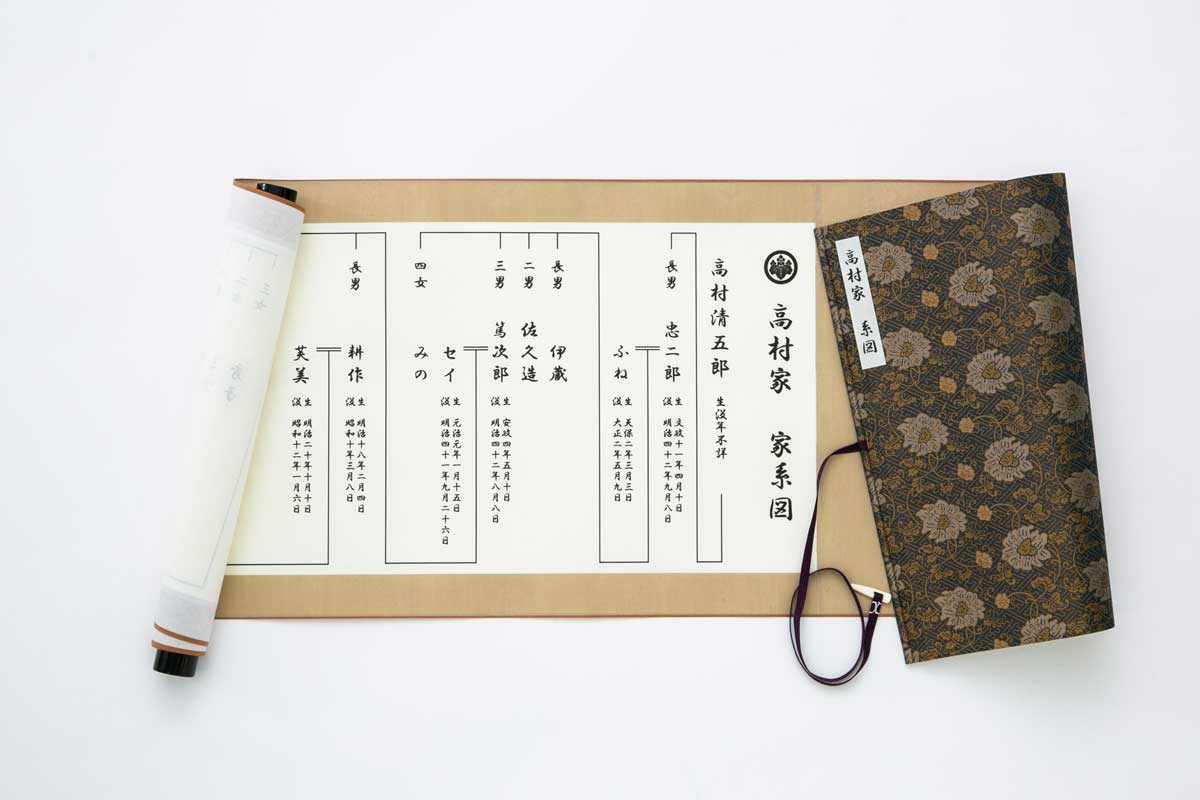 高村家 系図
高村家 家系図
高村清五郎 生没年不詳
長男 忠二郎
生 文政十一年四月十日
没 明治四十二年九月八日
ふね
生 天保二年三月三日
没 大正二年五月九日
長男 伊蔵
二男 佐久造
三男 篤次郎
生 安政四年五月十日
没 明治四十二年八月八日
セイ
生 元治元年一月十五日
没 明治四十一年九月二十六日
四女 みの
長男 耕作
生 明治十八年二月四日
没 昭和十年三月八日
芙美
生 明治二十年十月十日
没 昭和十二年一月六日
三女